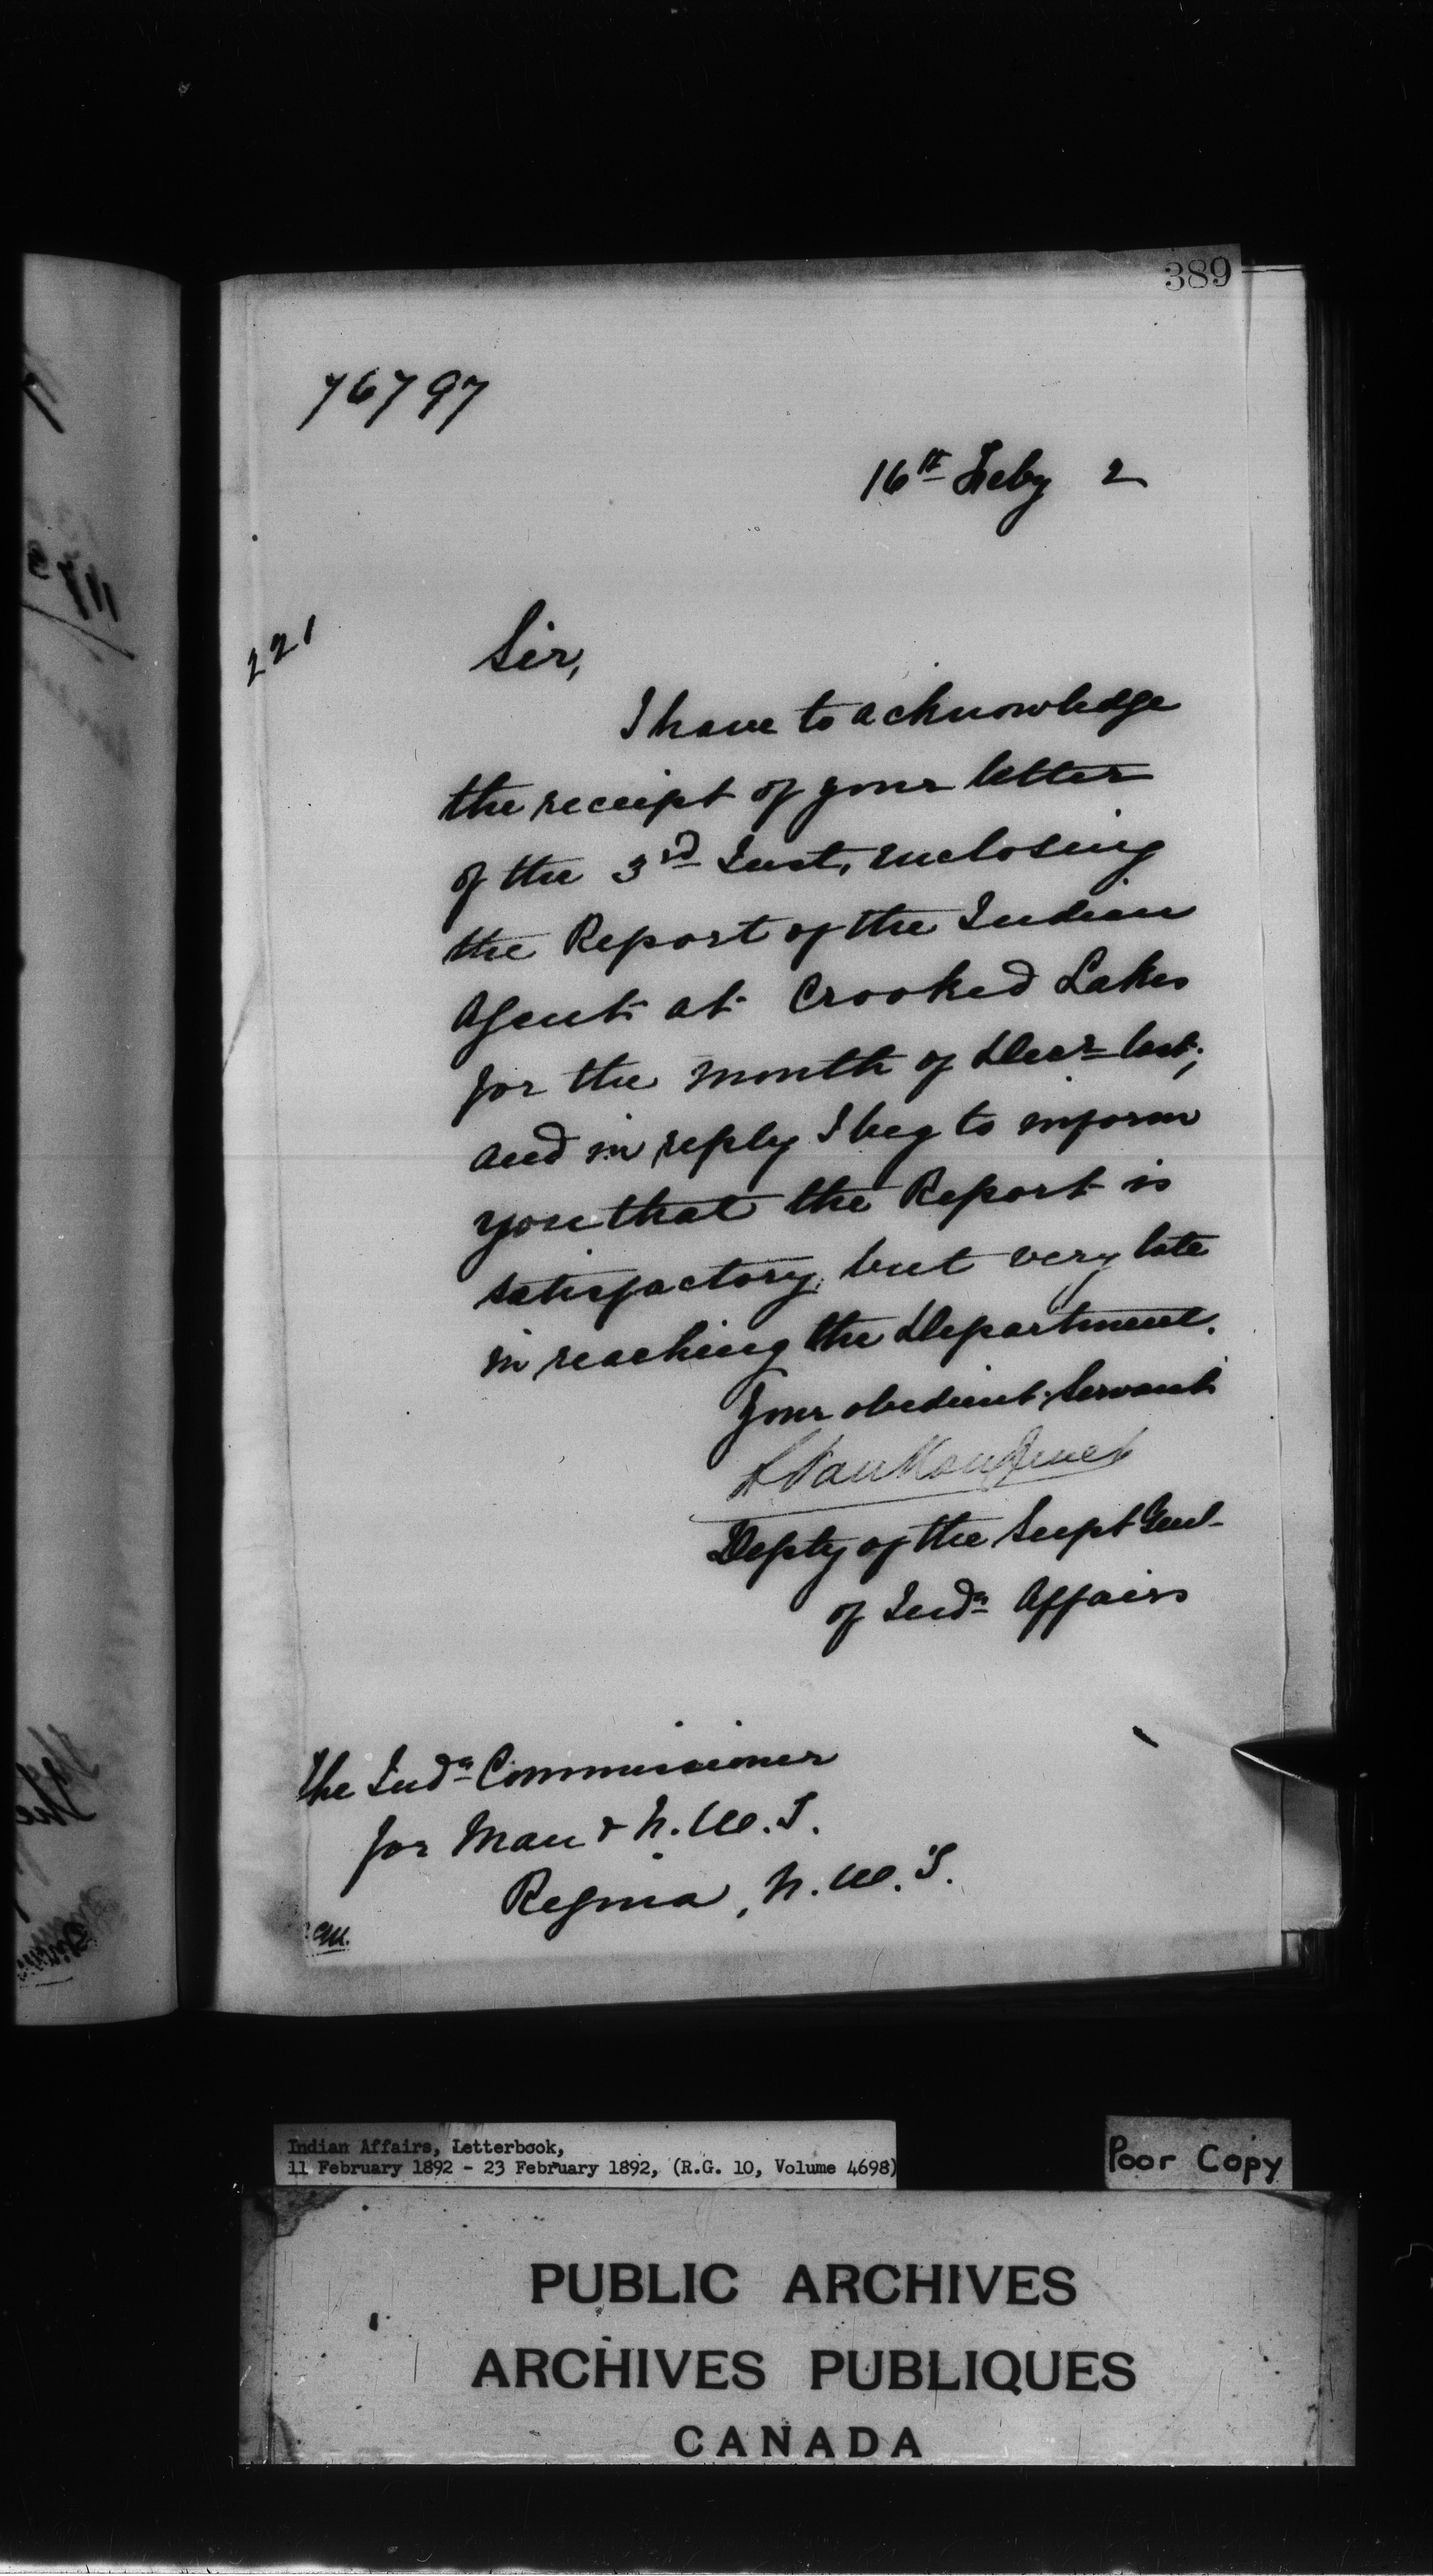 389
76797
16th Feby 2
221
Sir,
I have to acknowledge
the receipt of your letter
of the 3rd Inst, inclosing
the Report of the Indian
Agent at Crooked Lakes
for the month of Decr last;
and in reply I beg to inform
you that the Report is
satisfactory, but very late
in reaching the Department.
Your obedient Servant
L Vankoughnet
Depty of the Supt Genl
of Indn Affairs
The Indn Commissioner
for Man & N.W.T.
Regina, N.W.T.
Indian Affairs, Letterbook,
11 February 1892 - 23 February 1892, (R.G. 10, Volume 4698)
Poor Copy
PUBLIC ARCHIVES
ARCHIVES PUBLIQUES
CANADA